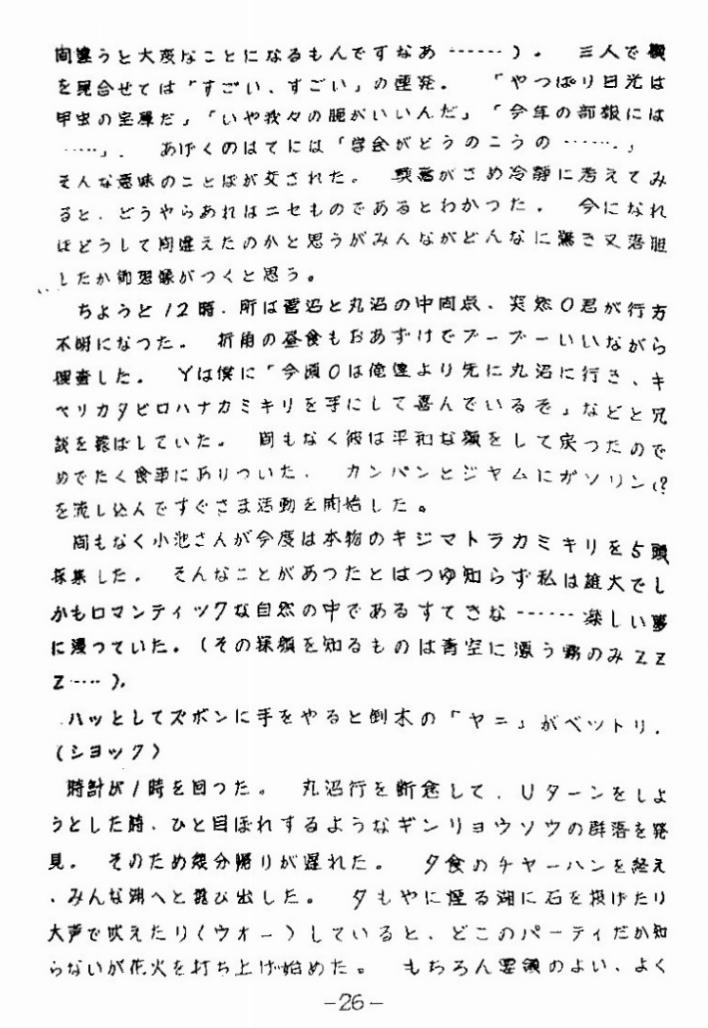 間違うと大変なことになるもんですなあ……）。　三人で顔
を見合せては「すごい、すごい」の連発。　「やつぱり日光は
甲虫の宝庫だ」「いや我々の腕がいいんだ」「今年の部報には
……」。　あげくのはてには「学会がどうのこうの……」
そんな意味のことばが交された。　興奮がさめ冷静に考えてみ
ると、どうやらあれはニセものであるとわかつた。　今になれ
ばどうして間違えたのかと思うがみんながどんなに驚き又落胆
したか御想像がつくと思う。
ちようど12時、所は菅沼と丸沼の中間点、突然O君が行方
不明になつた。　折角の昼食もおあずけでブーブーいいながら
捜査した。　Yは僕に「今頃Oは俺達より先に丸沼に行き、キ
ベリカタビロハナカミキリを手にして喜んでいるぞ」などと冗
談を飛ばしていた。　間もなく彼は平和な顔をして戻つたので
めでたく食事にありついた。　カンパンとジヤムにガソリン(?
を流し込んですぐさま活動を開始した。
間もなく小池さんが今度は本物のキジマトラカミキリを5頭
採集した。　そんなことがあつたとはつゆ知らず私は雄大でし
かもロマンティツクな自然の中であるすてきな……楽しい夢
に浸つていた。（その寝顔を知るものは青空に漂う霧のみZZ
Z……）。
ハッとしてズボンに手をやると倒木の「ヤニ」がベツトリ。
（シヨツク）
時計が1時を回つた。　丸沼行を断念して、Uターンをしよ
うとした時、ひと目ぼれするようなギンリョウソウの群落を発
見。　そのため幾分帰りが遅れた。　夕食のチヤーハンを終え
、みんな湖へと飛び出した。　夕もやに煙る湖に石を投げたり
大声で吠えたり（ウオー）していると、どこのパーティだか知
らないが花火を打ち上げ始めた。　もちろん要領のよい、よく
-26-